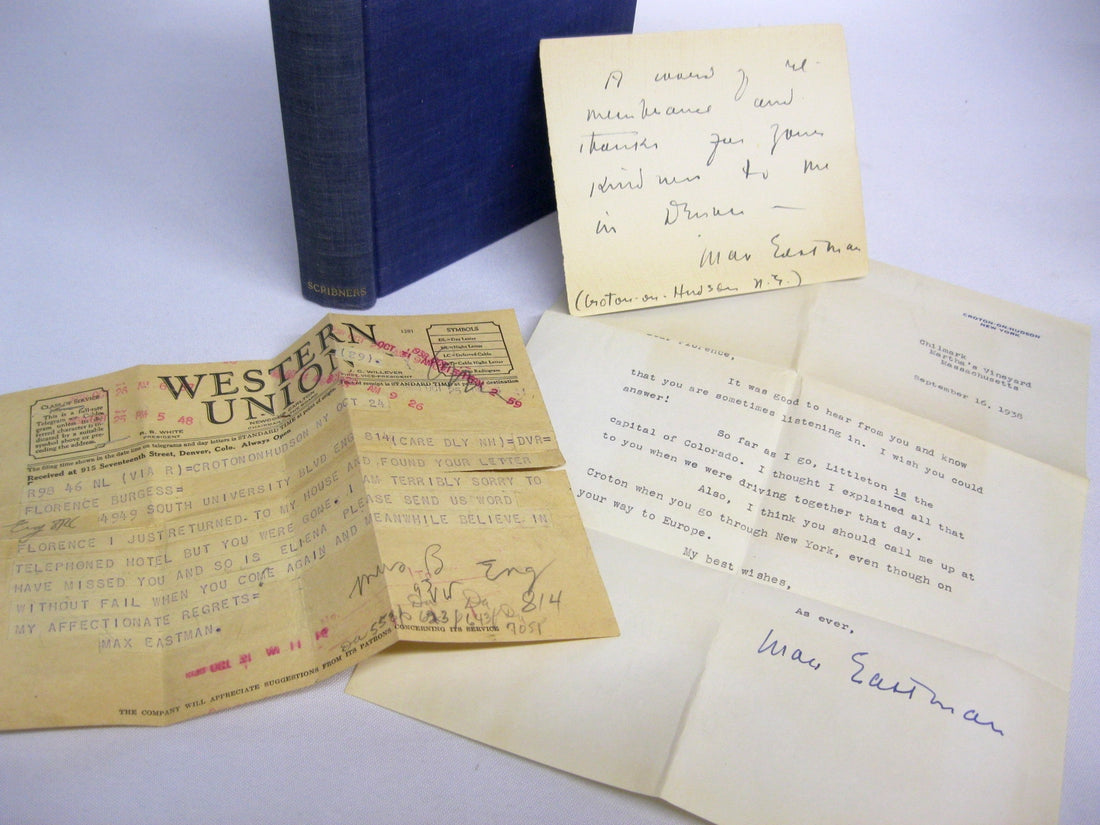 SCRIBNERS
A word of re-
membrance and
thanks for your
kindness to me
in Denver —
Max Eastman
(Croton-on-Hudson N.Y.)
WESTERN
UNION
1201
SYMBOLS
DL=Day Letter
NL=Night Letter
LC=Deferred Cable
CLASS OF SERVICE
This is a full-rate
Telegram
R. B. WHITE
PRESIDENT
J. C. WILLEVER
The filing time shown in the date line on telegrams and day letters is STANDARD TIME
Received at 915 Seventeenth Street, Denver, Colo. Always Open
R98 46 NL (VIA R)=CROTONONHUDSON NY OCT 24
FLORENCE BURGESS=
4949 SOUTH UNIVERSITY BLVD ENG 814(CARE DLY NH)=DVR=
FLORENCE I JUST RETURNED TO MY HOUSE AND FOUND YOUR LETTER
TELEPHONED HOTEL BUT YOU WERE GONE. I AM TERRIBLY SORRY TO
HAVE MISSED YOU AND SO IS ELIENA PLEASE SEND US WORD
WITHOUT FAIL WHEN YOU COME AGAIN AND MEANWHILE BELIEVE IN
MY AFFECTIONATE REGRETS=
MAX EASTMAN.
Mrs. B Eng
814
7051
THE COMPANY WILL APPRECIATE SUGGESTIONS FROM ITS PATRONS CONCERNING ITS SERVICE
CROTON-ON-HUDSON
NEW YORK
Chilmark,
Martha's Vineyard
Massachusetts
September 16, 1938
Florence,
It was good to hear from you and know
that you are sometimes listening in. I wish you could
answer!
So far as I go, Littleton is the
capital of Colorado. I thought I explained all that
to you when we were driving together that day.
Also, I think you should call me up at
Croton when you go through New York, even though on
your way to Europe.
My best wishes,
As ever,
Max Eastman